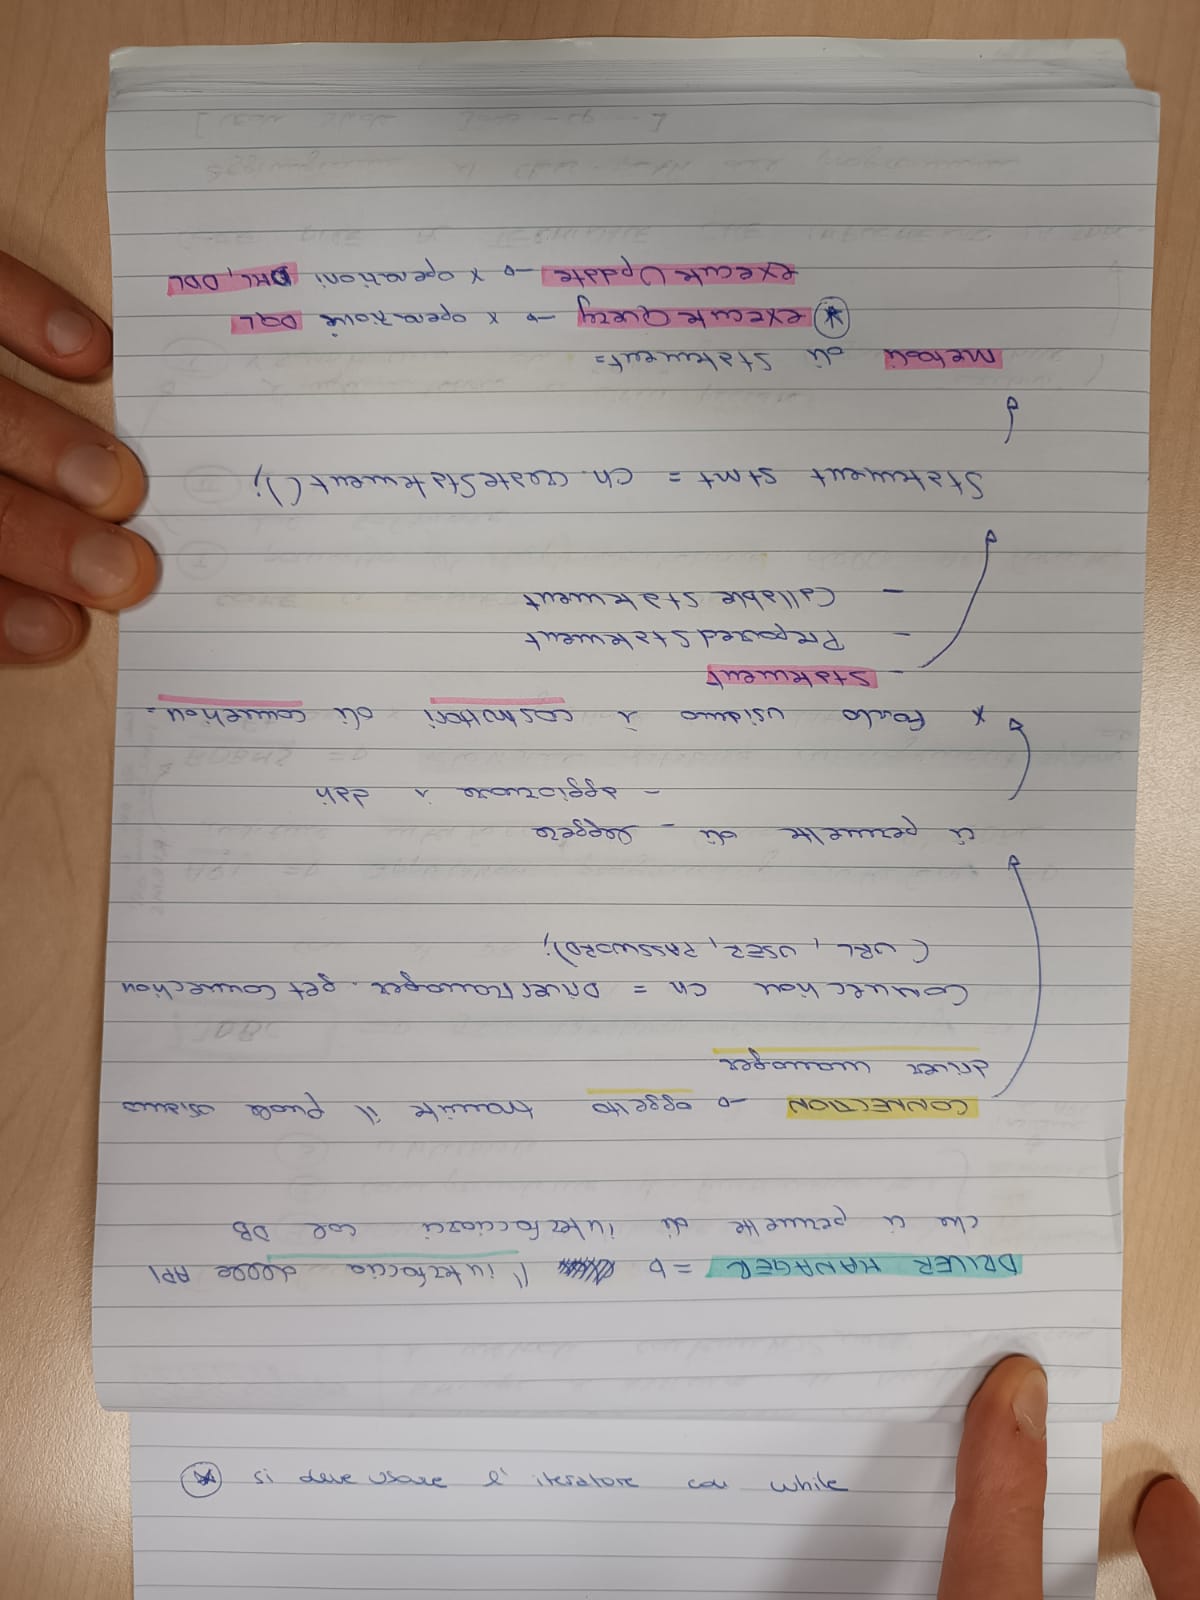 ⊛ si deve usare l'iteratore con while
DRIVER MANAGER => l'interfaccia delle API
che ci permette di interfacciarci col DB
CONNECTION -> oggetto tramite il quale usiamo
driver manager
Connection cn = DriverManager.getConnection
(URL, USER, PASSWORD);
ci permette di - leggere
- aggiornare i dati
x farlo usiamo i costruttori di connection =
- Statement
- PreparedStatement
- Callable statement
Statement stmt = cn.createStatement();
metodi di Statement =
⊛ executeQuery -> x operazione DQL
executeUpdate -> x operazioni DML, DDL